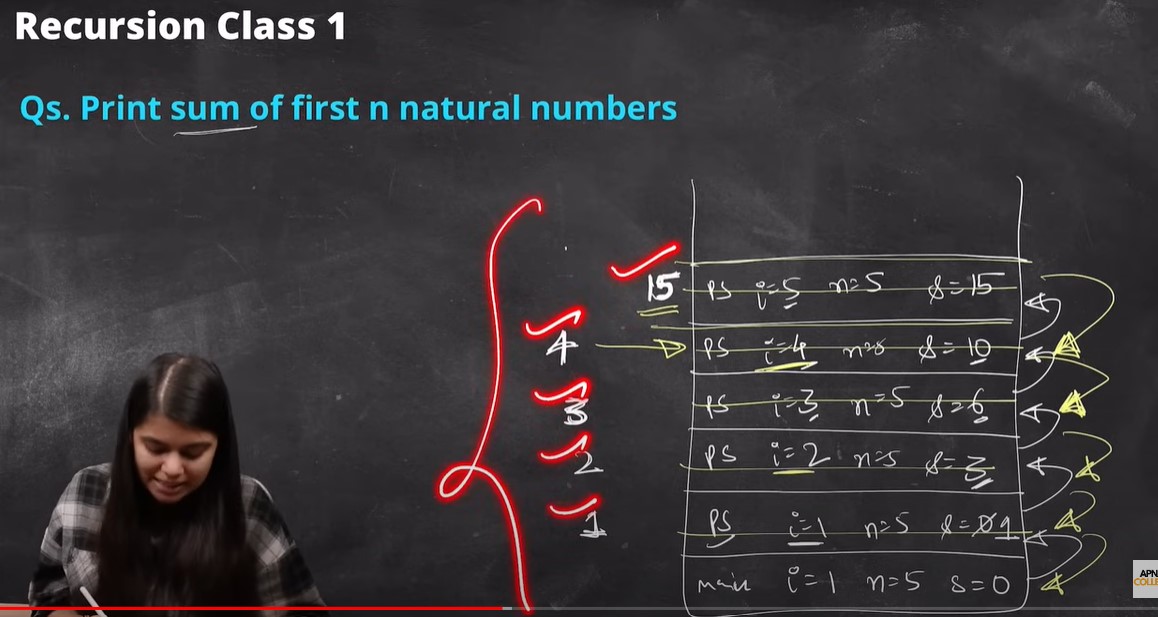 Recursion Class 1
Qs. Print sum of first n natural numbers
15 PS i=5 n=5 s=15
4 PS i=4 n=5 s=10
3 PS i=3 n=5 s=6
2 PS i=2 n=5 s=3
1 PS i=1 n=5 s=0 1
main i=1 n=5 s=0
APN
COLLE